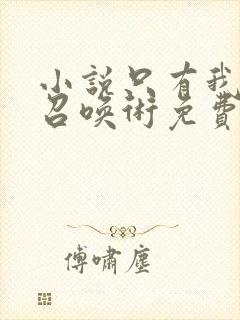 小說只有我
召喚術免費
傅嘯塵